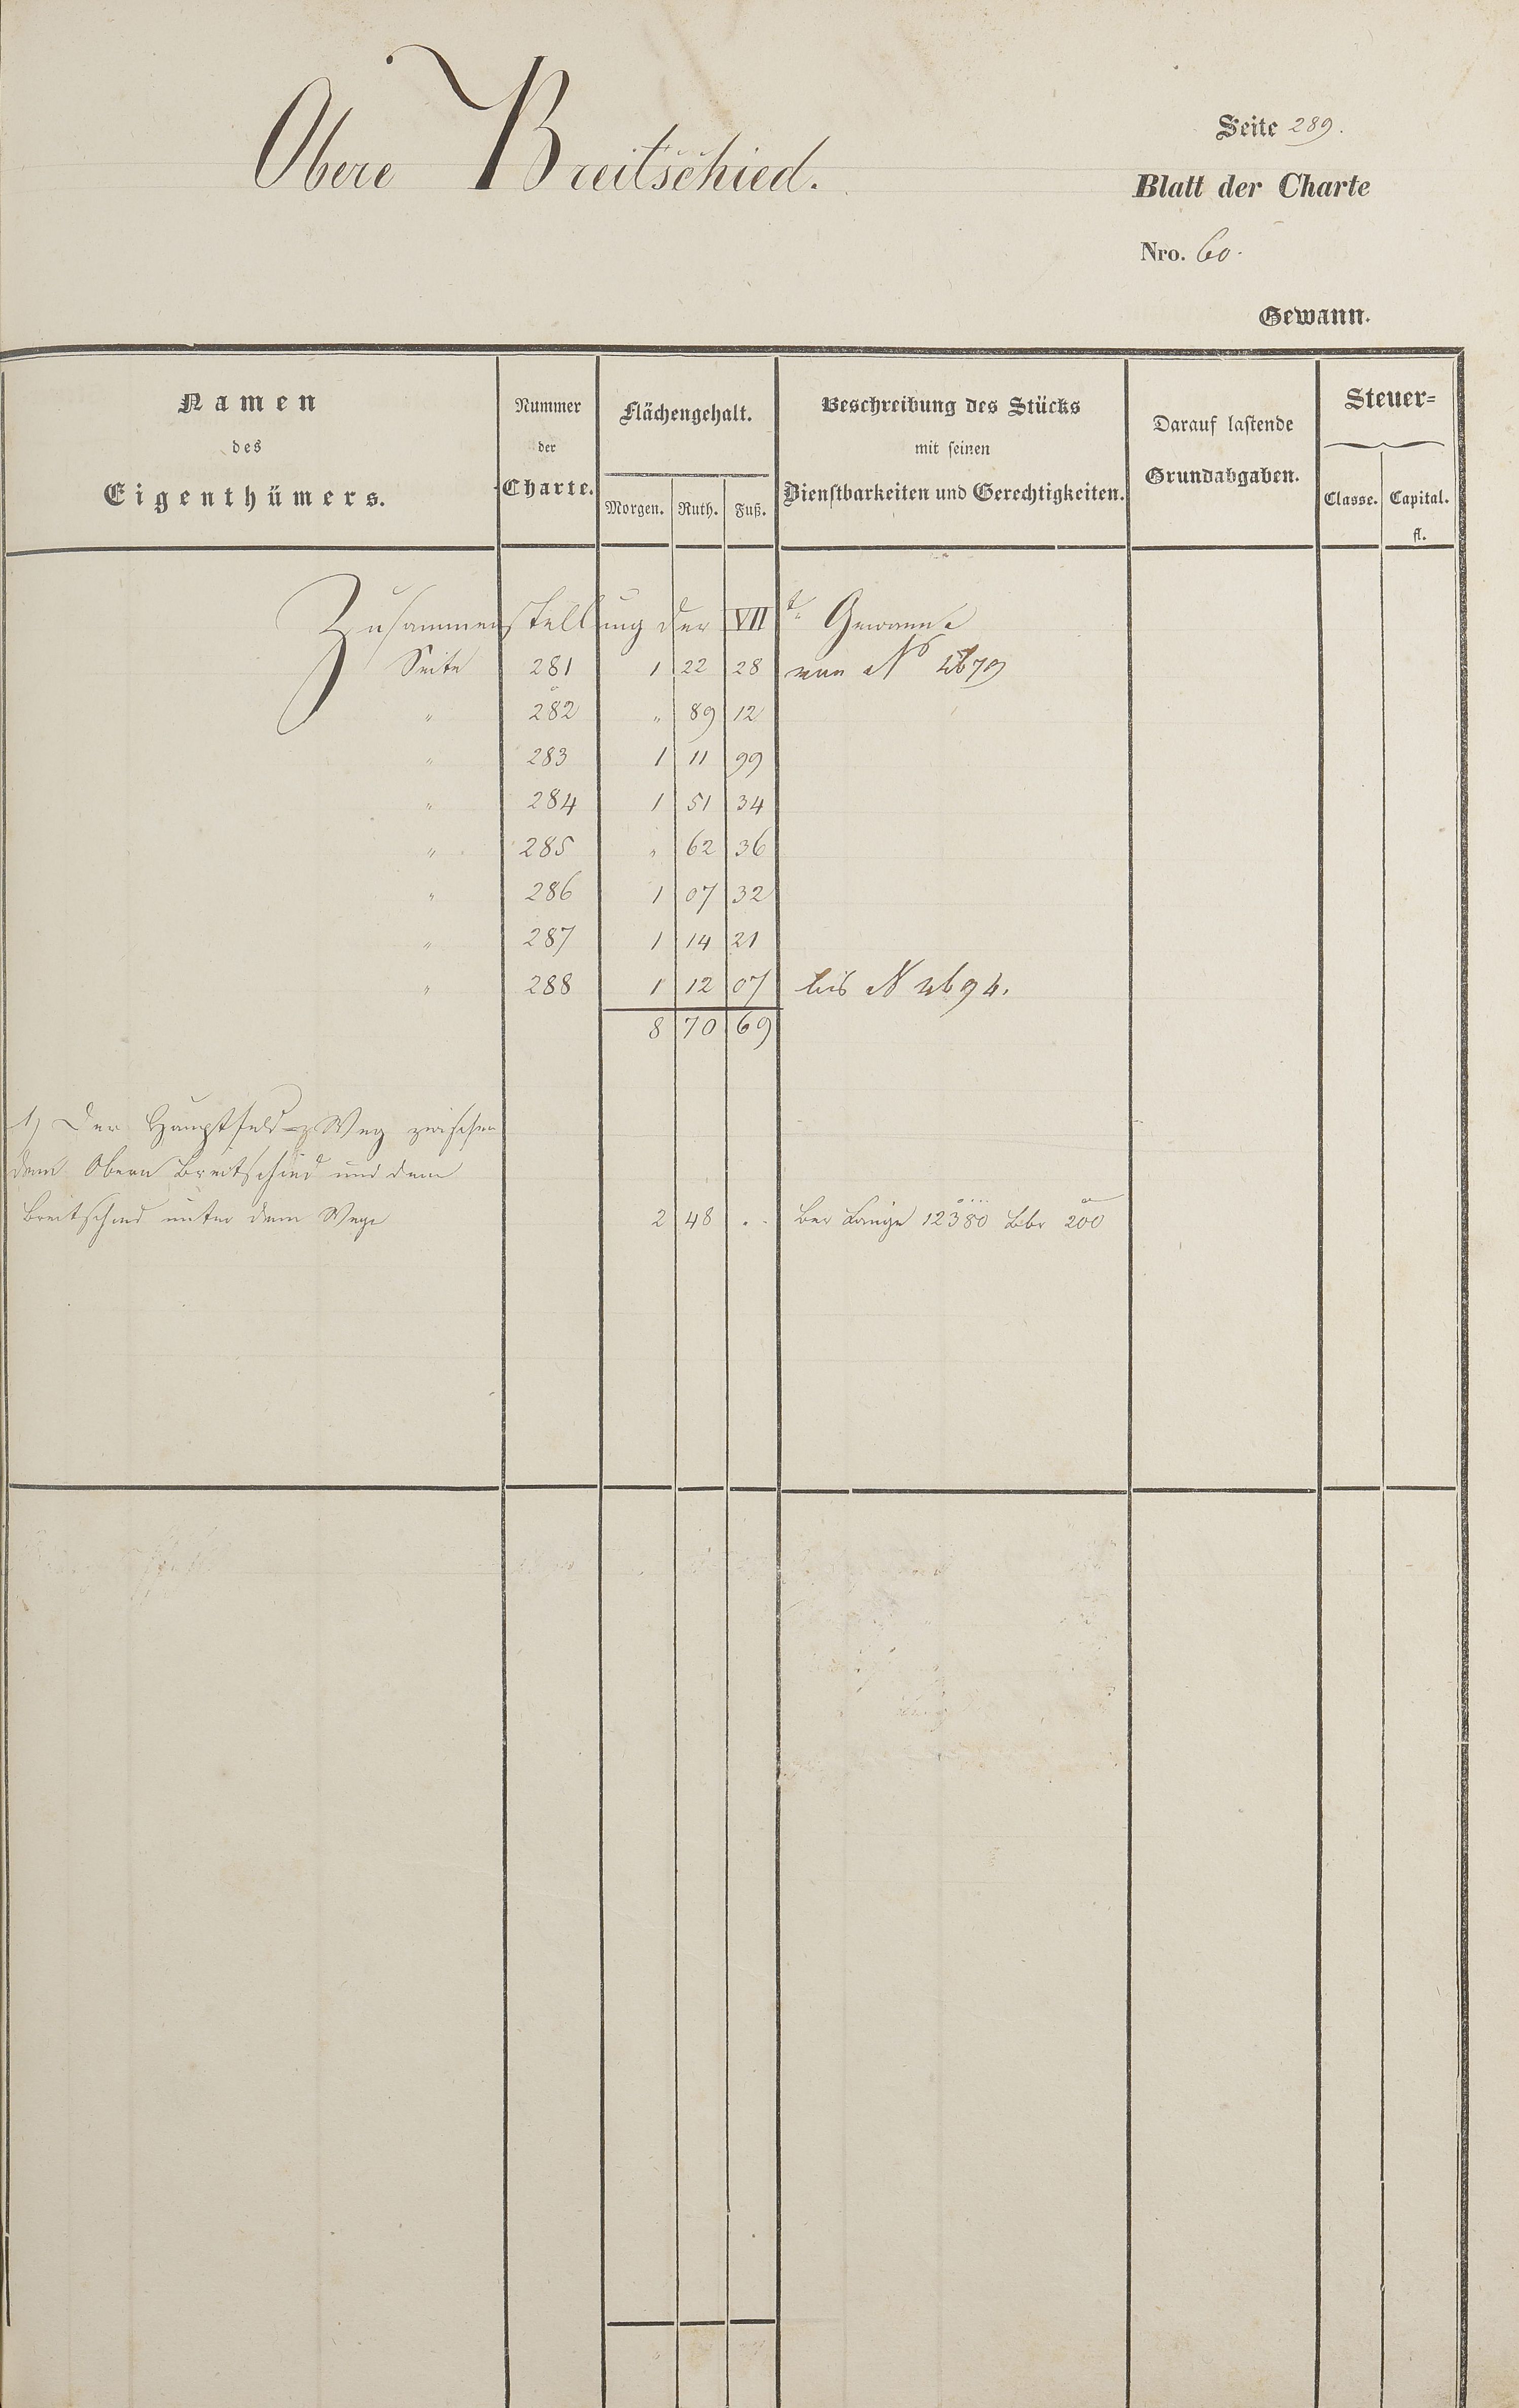 Obere Breitschied.
Seite 289.
Blatt der Charte
Nro. 60.
Gewann.
Namen des Eigenthümers.
Nummer der Charte.
Flächengehalt.
Morgen. Ruth. Fuß.
Beschreibung des Stücks mit seinen Dienstbarkeiten und Gerechtigkeiten.
Darauf lastende Grundabgaben.
Steuer-
Classe. Capital.
fl.
Zusammenstellung der VII t. Gewann
Seite 281 1 22 28 von No
" 282 " 89 12
" 283 1 11 99
" 284 1 51 34
" 285 " 62 36
" 286 1 07 32
" 287 1 14 21
" 288 1 12 07 bis N 4694.
8 70 69
1) Der Hauptfeld-Weg zwischen
dem Obern Breitschied und dem
Breitschied unter dem Wege 2 48 . . Länge 12380 200